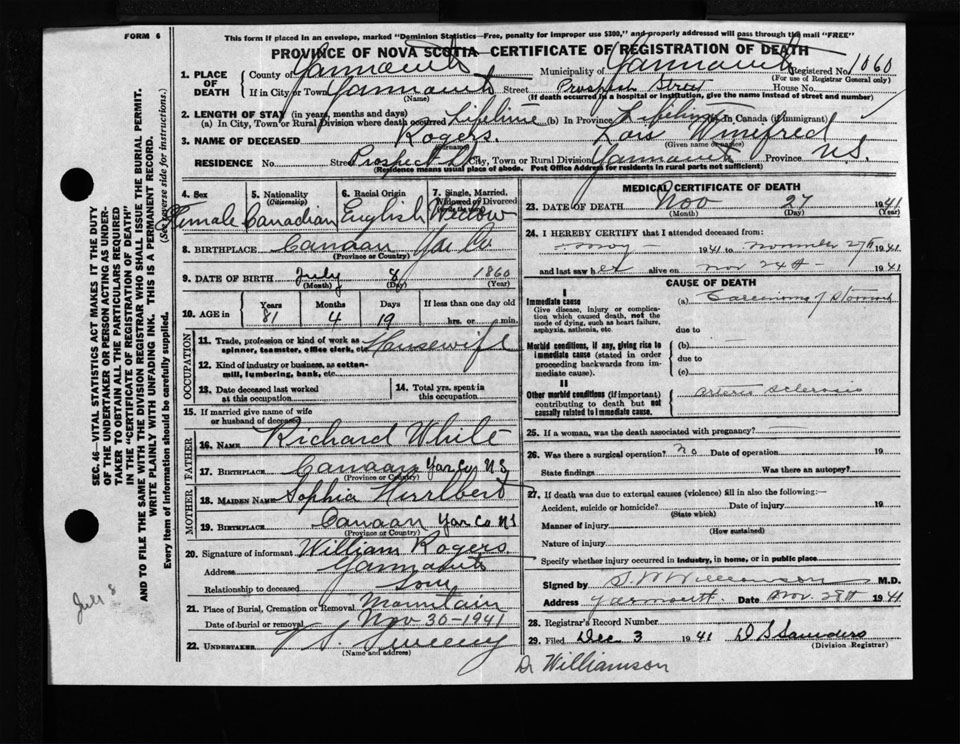 FORM 6
This form if placed in an envelope, marked "Dominion Statistics—Free, penalty for improper use $300," and properly addressed will pass through the mail "FREE"
PROVINCE OF NOVA SCOTIA—CERTIFICATE OF REGISTRATION OF DEATH
SEC. 46—VITAL STATISTICS ACT MAKES IT THE DUTY
OF THE UNDERTAKER OR PERSON ACTING AS UNDER-
TAKER TO OBTAIN ALL THE PARTICULARS REQUIRED
IN THE "CERTIFICATE OF REGISTRATION OF DEATH"
AND TO FILE THE SAME WITH THE DIVISION REGISTRAR WHO SHALL ISSUE THE BURIAL PERMIT.
WRITE PLAINLY WITH UNFADING INK. THIS IS A PERMANENT RECORD.
Every item of information should be carefully supplied. (See reverse side for instructions.)
July 8
1. PLACE OF DEATH County of Yarmouth Municipality of Yarmouth Registered No. 1060
(For use of Registrar General only)
If in City or Town Yarmouth Street Prospect Street House No.
(Name) (If death occurred in a hospital or institution, give the name instead of street and number)
2. LENGTH OF STAY (in years, months and days)
(a) In City, Town or Rural Division where death occurred Lifetime (b) In Province Lifetime (c) In Canada (if immigrant)
3. NAME OF DECEASED Rogers. Lois Winifred
(Surname) (Given name or names)
RESIDENCE No. Street Prospect St. City, Town or Rural Division Yarmouth Province N.S.
(Residence means usual place of abode. Post Office Address for residents in rural parts not sufficient)
4. Sex Female
5. Nationality (Citizenship) Canadian
6. Racial Origin English
7. Single, Married, Widowed or Divorced Widow
8. BIRTHPLACE Canaan Yar Co
(Province or Country)
9. DATE OF BIRTH July 8 1860
(Month) (Day) (Year)
10. AGE in Years Months Days If less than one day old
81 4 19 hrs. or min.
OCCUPATION
11. Trade, profession or kind of work as spinner, teamster, office clerk, etc. Housewife
12. Kind of industry or business, as cotton-mill, lumbering, bank, etc.
13. Date deceased last worked at this occupation
14. Total yrs. spent in this occupation
15. If married give name of wife or husband of deceased
FATHER
16. NAME Richard White
17. BIRTHPLACE Canaan Yar Co N.S.
(Province or Country)
MOTHER
18. MAIDEN NAME Sophia Hurlbert
19. BIRTHPLACE Canaan Yar Co NS
(Province or Country)
20. Signature of informant William Rogers.
Address Yarmouth
Relationship to deceased Son
21. Place of Burial, Cremation or Removal Mountain
Date of burial or removal Nov 30-1941
22. UNDERTAKER V. S. Sweeny
(Name and address)
MEDICAL CERTIFICATE OF DEATH
23. DATE OF DEATH Nov 27 1941
(Month) (Day) (Year)
24. I HEREBY CERTIFY that I attended deceased from:
May 1941 to November 27th 1941
and last saw her alive on Nov 24th 1941
CAUSE OF DEATH
I
Immediate cause
Give disease, injury or complication which caused death, not the mode of dying, such as heart failure, asphyxia, asthenia, etc.
(a) Carcinoma of Stomach
due to
Morbid conditions, if any, giving rise to immediate cause (stated in order proceeding backwards from immediate cause).
(b)
due to
(c)
II
Other morbid conditions (if important) contributing to death but not causally related to immediate cause.
arterio sclerosis
25. If a woman, was the death associated with pregnancy?
26. Was there a surgical operation? no Date of operation 19
State findings Was there an autopsy?
27. If death was due to external causes (violence) fill in also the following:—
Accident, suicide or homicide? Date of injury 19
(State which)
Manner of injury
(How sustained)
Nature of injury
Specify whether injury occurred in industry, in home, or in public place
Signed by S. W. Williamson M.D.
Address Yarmouth. Date Nov. 28th 1941
28. Registrar's Record Number
29. Filed Dec 3 1941 D S Saunders
(Division Registrar)
Dr Williamson